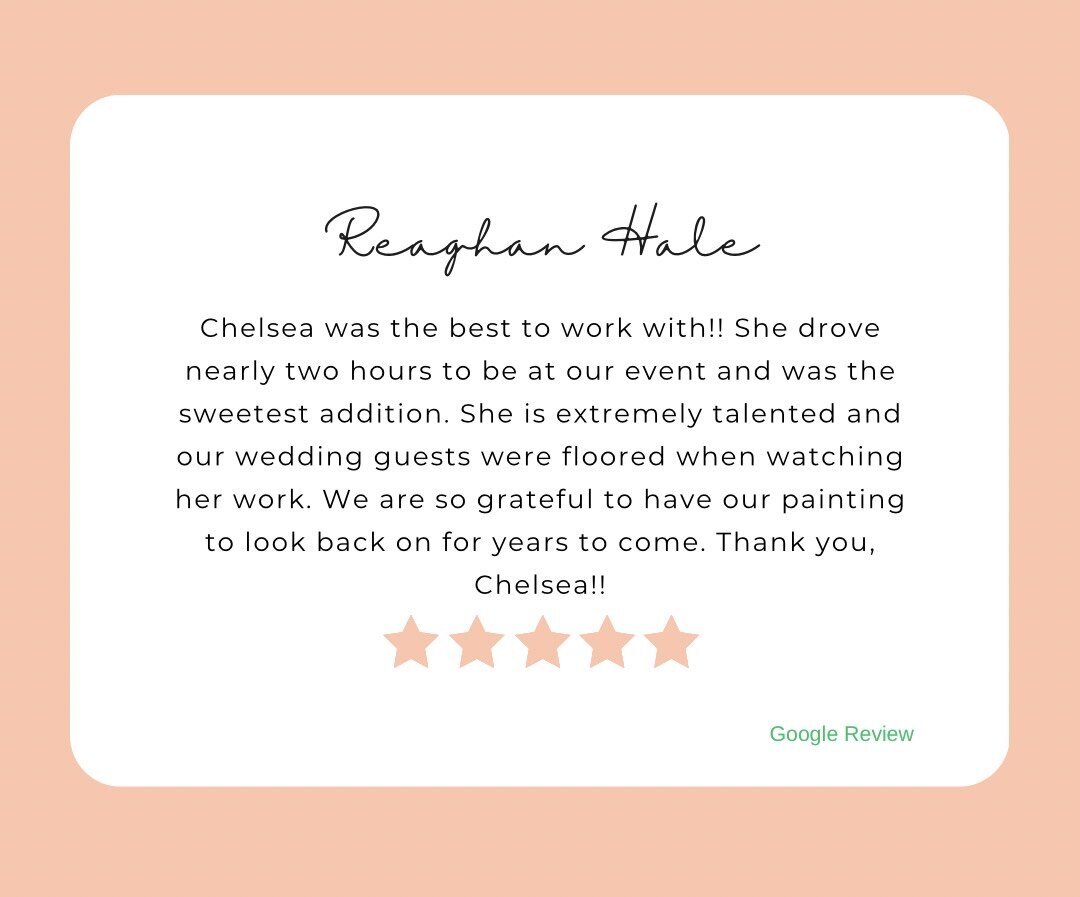 Reaghan Hale
Chelsea was the best to work with!! She drove
nearly two hours to be at our event and was the
sweetest addition. She is extremely talented and
our wedding guests were floored when watching
her work. We are so grateful to have our painting
to look back on for years to come. Thank you,
Chelsea!!
Google Review